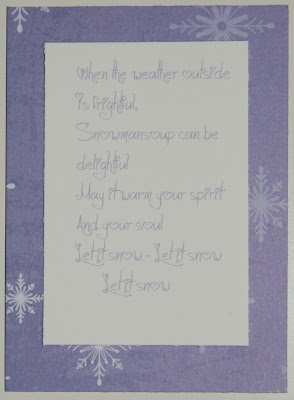 When the weather outside
Is frightful,
Snowmansoup can be
delightful
May it warm your spirit
And your soul
Let it snow - Let it snow
Let it snow